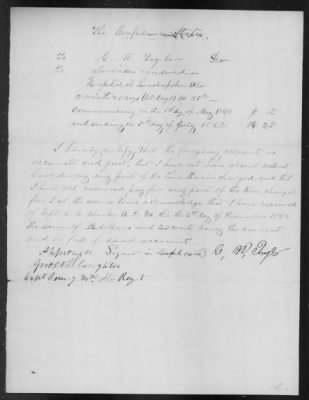 The Confederate States
To C. W. Taylor Dr
To Services rendered in
Hospital at Ala
2 months & 5 days (65 days) at 25c
commencing on the 1st day of May 1862 $ c
and ending on 5th day of July 1862 16 25
I hereby certify that the foregoing account is
accurate and just, that I have not been absent without
leave during any part of the time therein charged, and that
I have not received pay for any part of the time charged
for, & at the same time acknowledge that I have received
of Capt. A. Q. M. this the day of December 1862
the sum of 16 dollars and 25 cents being the amount
and in full of said account
Approved Signed in duplicate C. W.
Slaughter
Capt Comdg 24th Ala Regt